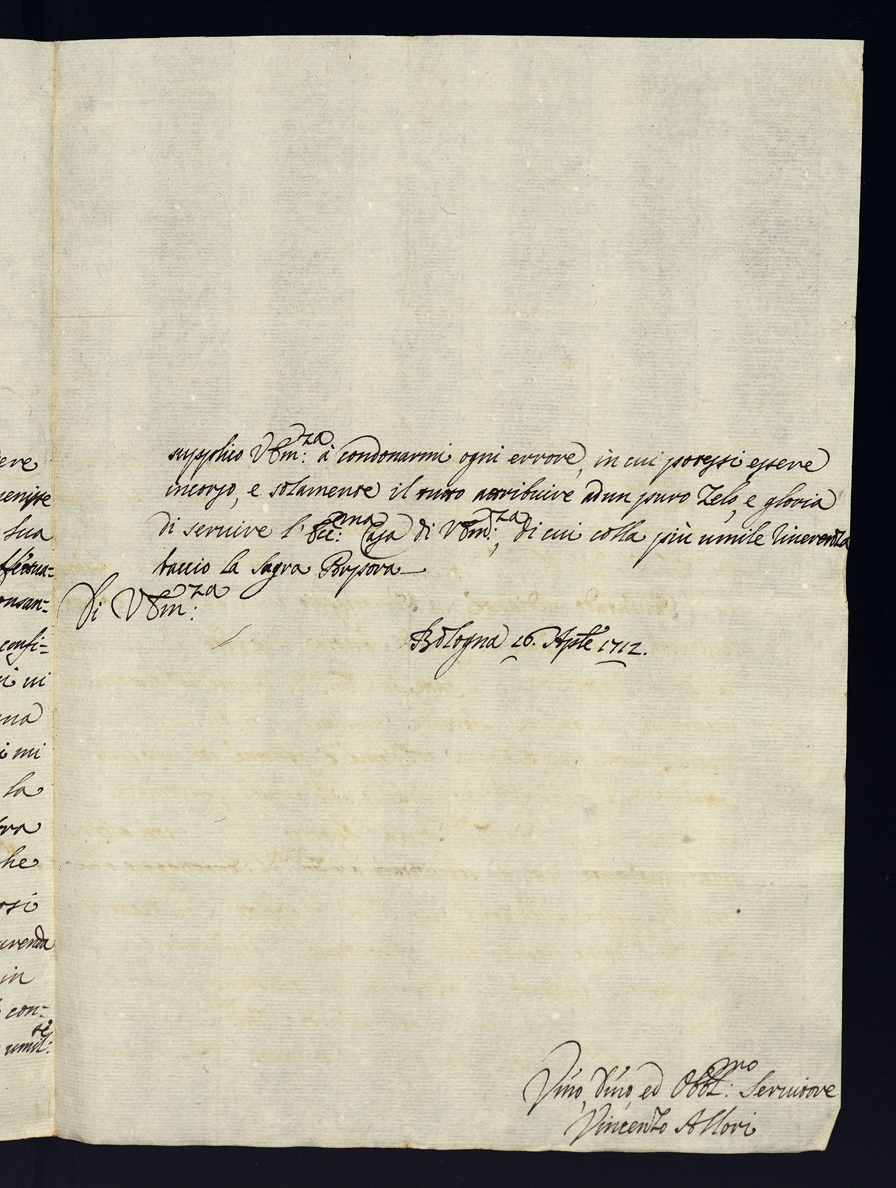 supplico V. Em:za à condonarmi ogni errore, in cui potessi essere
incorso, e solamente il tutto attribuire ad un puro Zelo, e gloria
di servire l'Ecc:ma Casa di V. Em:za, di cui colla più umile riverenza
baccio la Sagra Porpora
Di V. Em:za
Bologna 16. Aple 1712.
Vmo, Dmo, ed Obbl:mo Servitore
Vincenzo Allori
ere
sua
confi=
i mi
la
he
in
con=